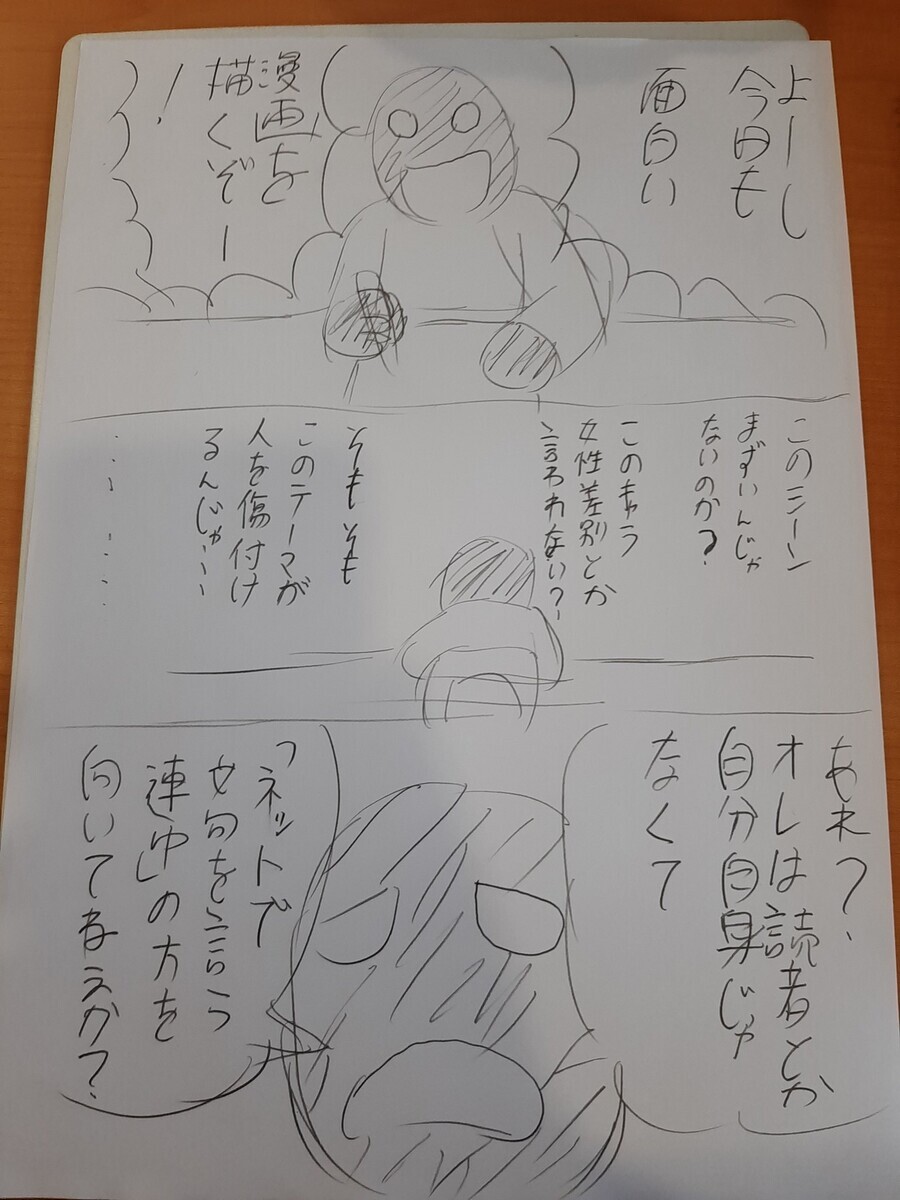 よーし
今日も
面白い
漫画を
描くぞー
！
このシーン
まずいんじゃ
ないのか？
このキャラ
女性差別とか
言われない？
そもそも
このテーマが
人を傷付け
るんじゃ…
……
あれ？
オレは読者とか
自分自身じゃ
なくて
「ネットで
文句を言う
連中」の方を
向いてねえか？